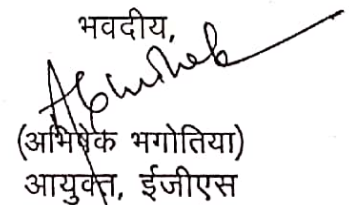 भवदीय,
Abhishek
(अभिषेक भगोतिया)
आयुक्त, ईजीएस